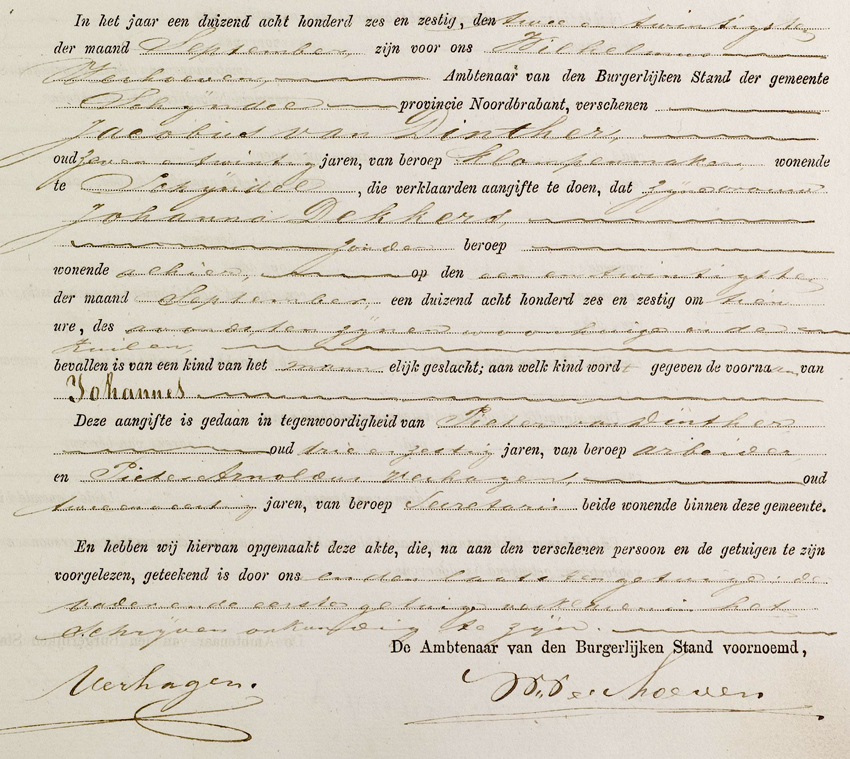 In het jaar een duizend acht honderd zes en zestig, den twee en twintigste
der maand September, zijn voor ons Wilhelmus
Verhoeven, Ambtenaar van den Burgerlijken Stand der gemeente
Schijndel provincie Noordbrabant, verschenen
Jacobus van Dinther,
oud zeven en twintig jaren, van beroep klompenmaker, wonende
te Schijndel, die verklaarden aangifte te doen, dat zijne vrouw
Johanna Dekkers,
zonder beroep
wonende alhier, op den een en twintigsten
der maand September, een duizend acht honderd zes en zestig om tien
ure, des avonds ten zijnen woonhuize in de
bevallen is van een kind van het mannelijk geslacht; aan welk kind wordt gegeven de voornaam van
Johannes
Deze aangifte is gedaan in tegenwoordigheid van Pieter van Dinther
oud drie en zestig jaren, van beroep arbeider,
en Pieter Arnoldus Verhagen, oud
jaren, van beroep Secretaris beide wonende binnen deze gemeente.
En hebben wij hiervan opgemaakt deze akte, die, na aan den verschenen persoon en de getuigen te zijn
voorgelezen, geteekend is door ons en den laatsten getuige: de
vader en de eerste getuige verklaren het
schrijven onkundig te zijn.
De Ambtenaar van den Burgerlijken Stand voornoemd,
Verhagen. W. Verhoeven